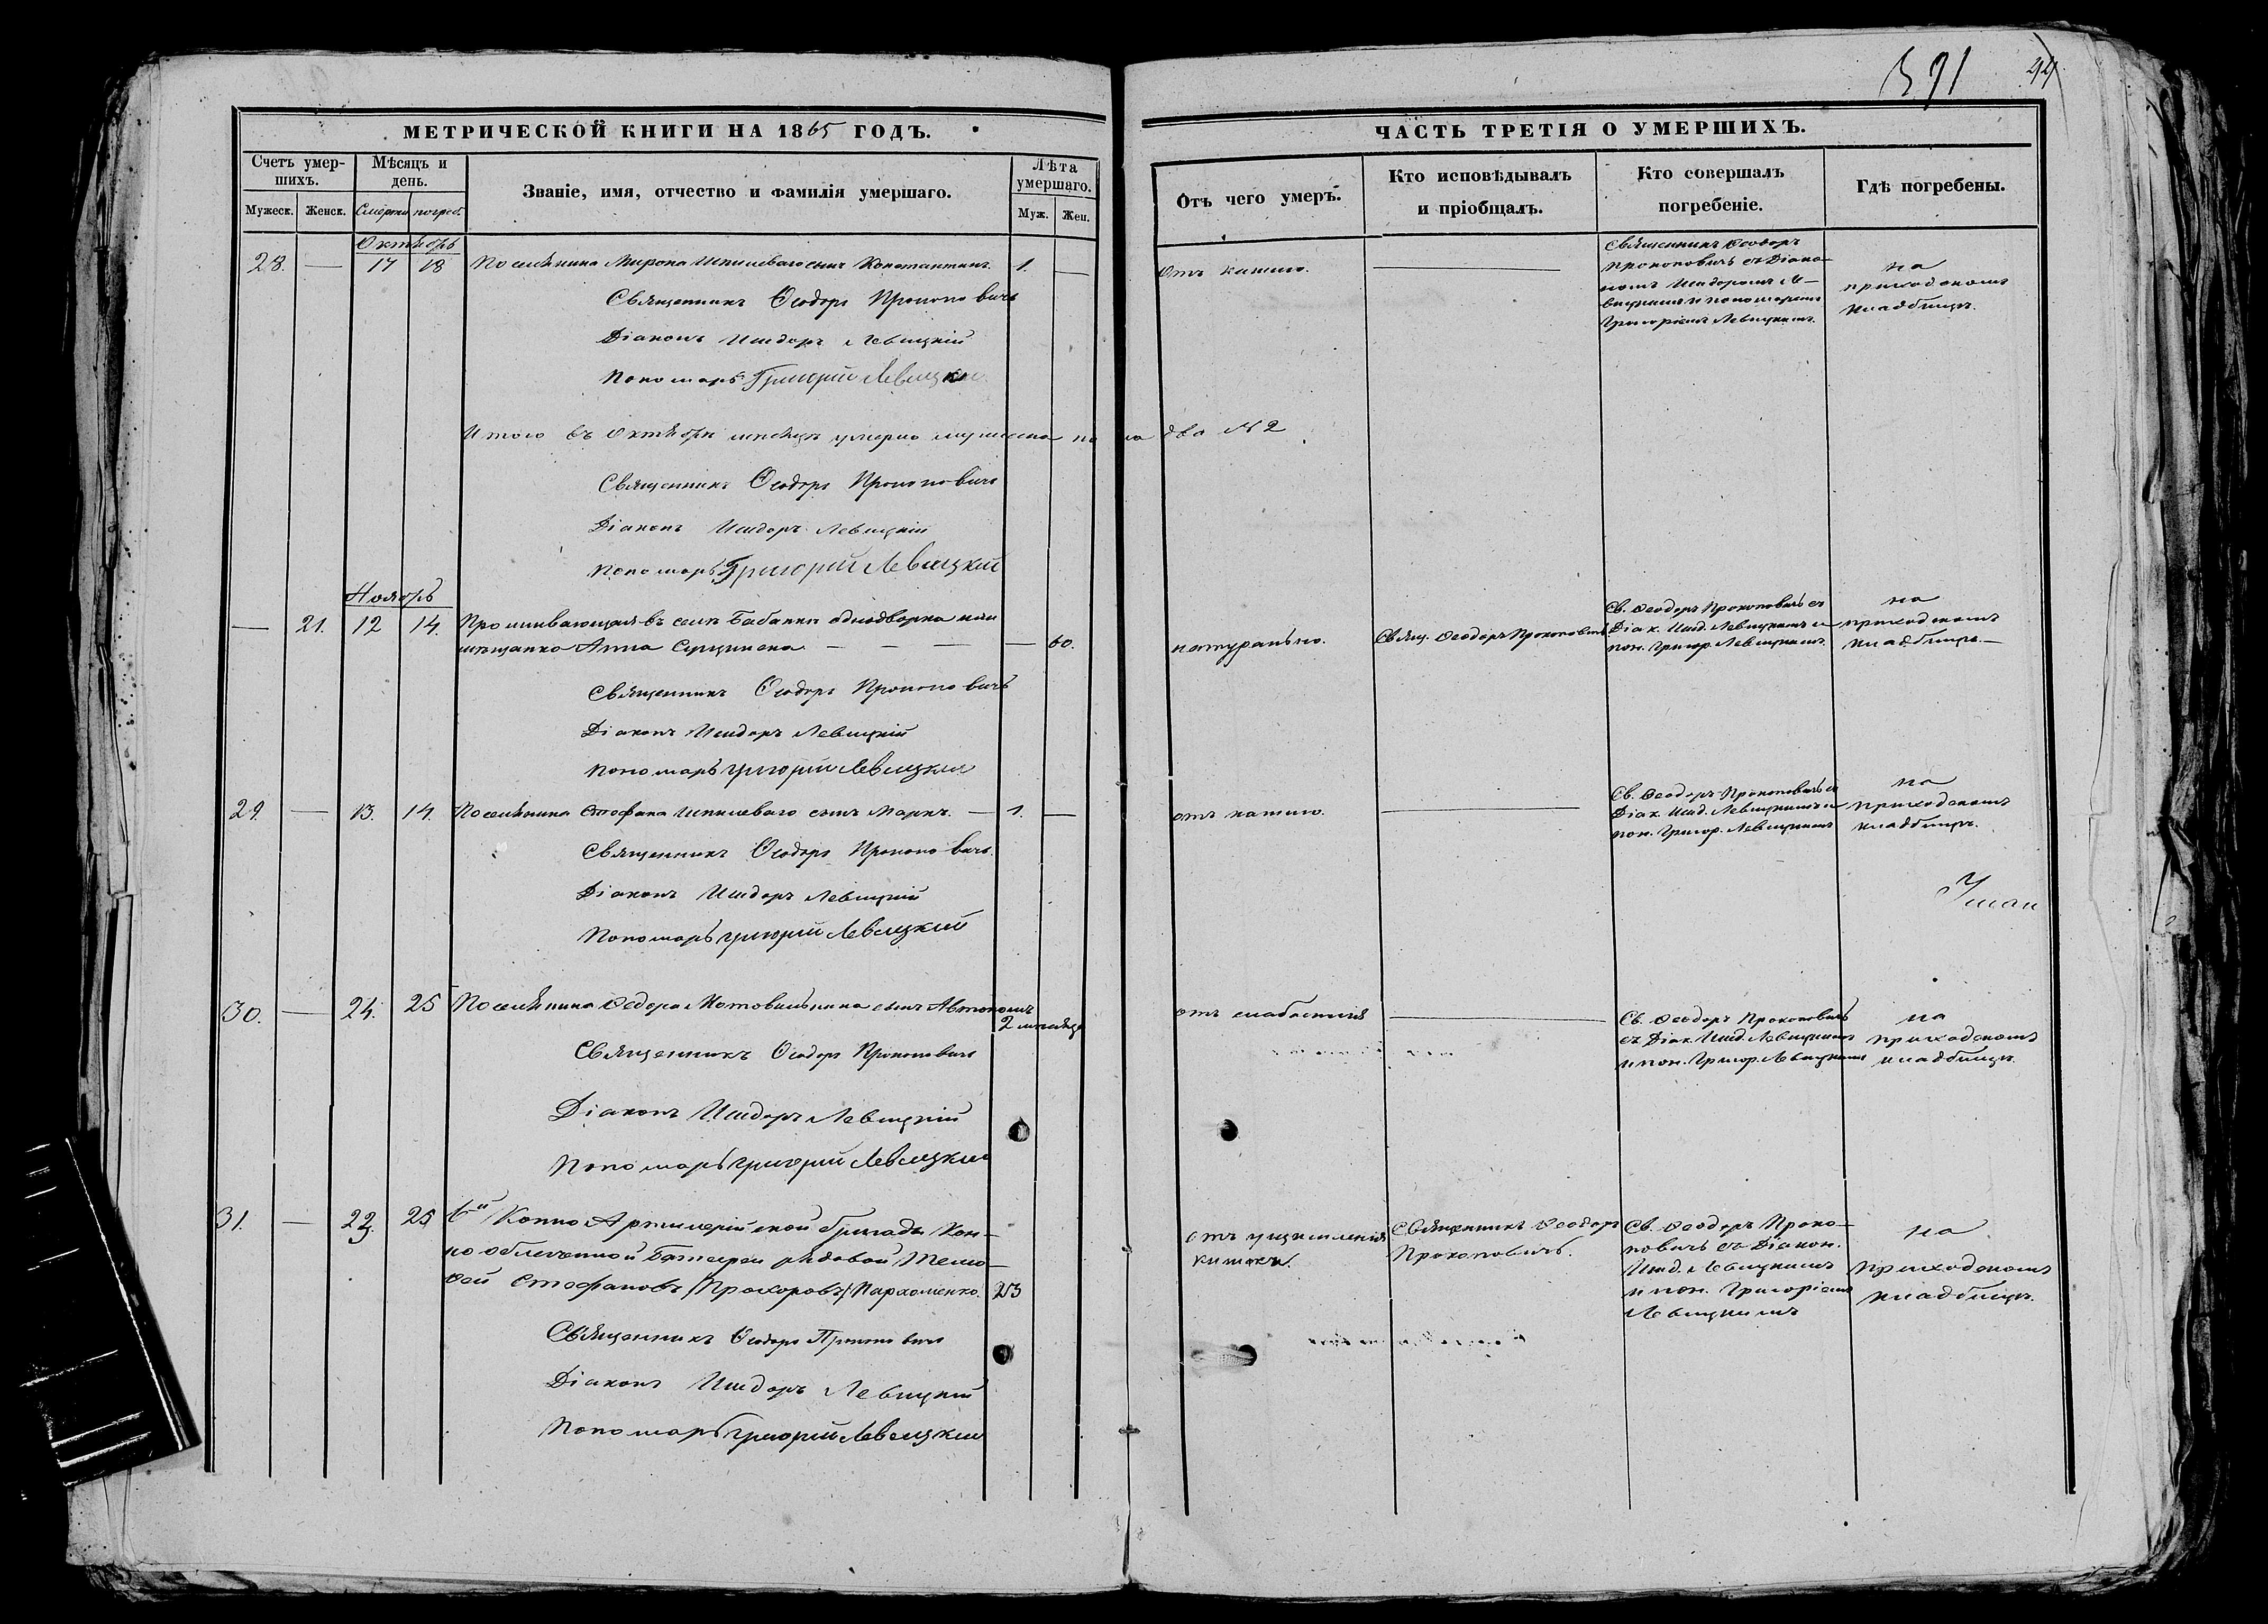 591 44
МЕТРИЧЕСКОЙ КНИГИ НА 1865 ГОДЪ.
Счетъ умер-
шихъ.
Мѣсяцъ и
день.
Званіе, имя, отчество и фамилія умершаго.
Лѣта
умершаго.
Мужеск. Женск. Смерти погреб. Муж. Жен.
Октябрь
28. — 17 18 Поселянина Мирона Шпилеваго сынъ Константинъ. 1. —
Священникъ Ѳеодоръ Прокоповичъ
Діаконъ Исидоръ Левицкій
Пономарь Григорій Левицкій
Итого въ Октябрѣ мѣсяцѣ умерло мужеска пола два № 2
Священникъ Ѳеодоръ Прокоповичъ
Діаконъ Исидоръ Левицкій
Пономарь Григорій Левицкій
Ноябрь
— 21. 12 14. Проживающая въ селѣ Бабанкѣ однодворка или
мѣщанка Анна — — — — 60.
Священникъ Ѳеодоръ Прокоповичъ
Діаконъ Исидоръ Левицкій
Пономарь Григорій Левицкій
29. — 13. 14. Поселянина Стефана Шпилеваго сынъ Маркъ. — 1. —
Священникъ Ѳеодоръ Прокоповичъ.
Діаконъ Исидоръ Левицкій
Пономарь Григорій Левицкій
30. — 24. 25 Поселянина Ѳедора Мотовильника сынъ Автономъ
2 мѣсяца
Священникъ Ѳеодоръ Прокоповичъ
Діаконъ Исидоръ Левицкій
Пономарь Григорій Левицкій
31. — 23. 25 6й Конно Артилерійской бригады Кон-
но облегченной Батареи рядовой Тимо-
фей Стефановъ /Прохоровъ/ Пархоменко. 23
Священникъ Ѳеодоръ Прокоповичъ
Діаконъ Исидоръ Левицкій
Пономарь Григорій Левицкій
ЧАСТЬ ТРЕТІЯ О УМЕРШИХЪ.
Отъ чего умеръ.
Кто исповѣдывалъ
и пріобщалъ.
Кто совершалъ
погребеніе.
Гдѣ погребены.
Отъ кашлю. —
Священникъ Ѳеодоръ
Прокоповичъ съ Діако-
номъ Исидоромъ Ле-
вицкимъ и пономаремъ
Григоріемъ Левицкимъ.
на
приходскомъ
кладбищѣ.
натурально. Свящ. Ѳеодоръ Прокоповичъ
Св. Ѳеодоръ Прокоповичъ съ
Діак. Исид. Левицкимъ и
пон. Григор. Левицкимъ.
на
приходскомъ
кладбищѣ. —
отъ кашлю. —
Св. Ѳеодоръ Прокоповичъ съ
Діак. Исид. Левицкимъ и
пон. Григор. Левицкимъ
на
приходскомъ
кладбищѣ.
отъ слабостія —
Св. Ѳеодоръ Прокоповичъ
съ Діак. Исид. Левицкимъ
и пон. Григор. Левицкимъ
на
приходскомъ
кладбищѣ
отъ ущемленія
кишокъ.
Священникъ Ѳеодоръ
Прокоповичъ.
Св. Ѳеодоръ Проко-
повичъ съ Діакон.
Исид. Левицкимъ
и пон. Григоріемъ
Левицкимъ
на
приходскомъ
кладбищѣ.